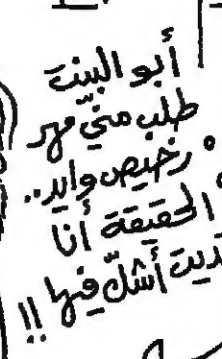 أبو البنت
طلب منّي مهر
رخيص وايد..
الحقيقة أنا
أشكّ فيها !!